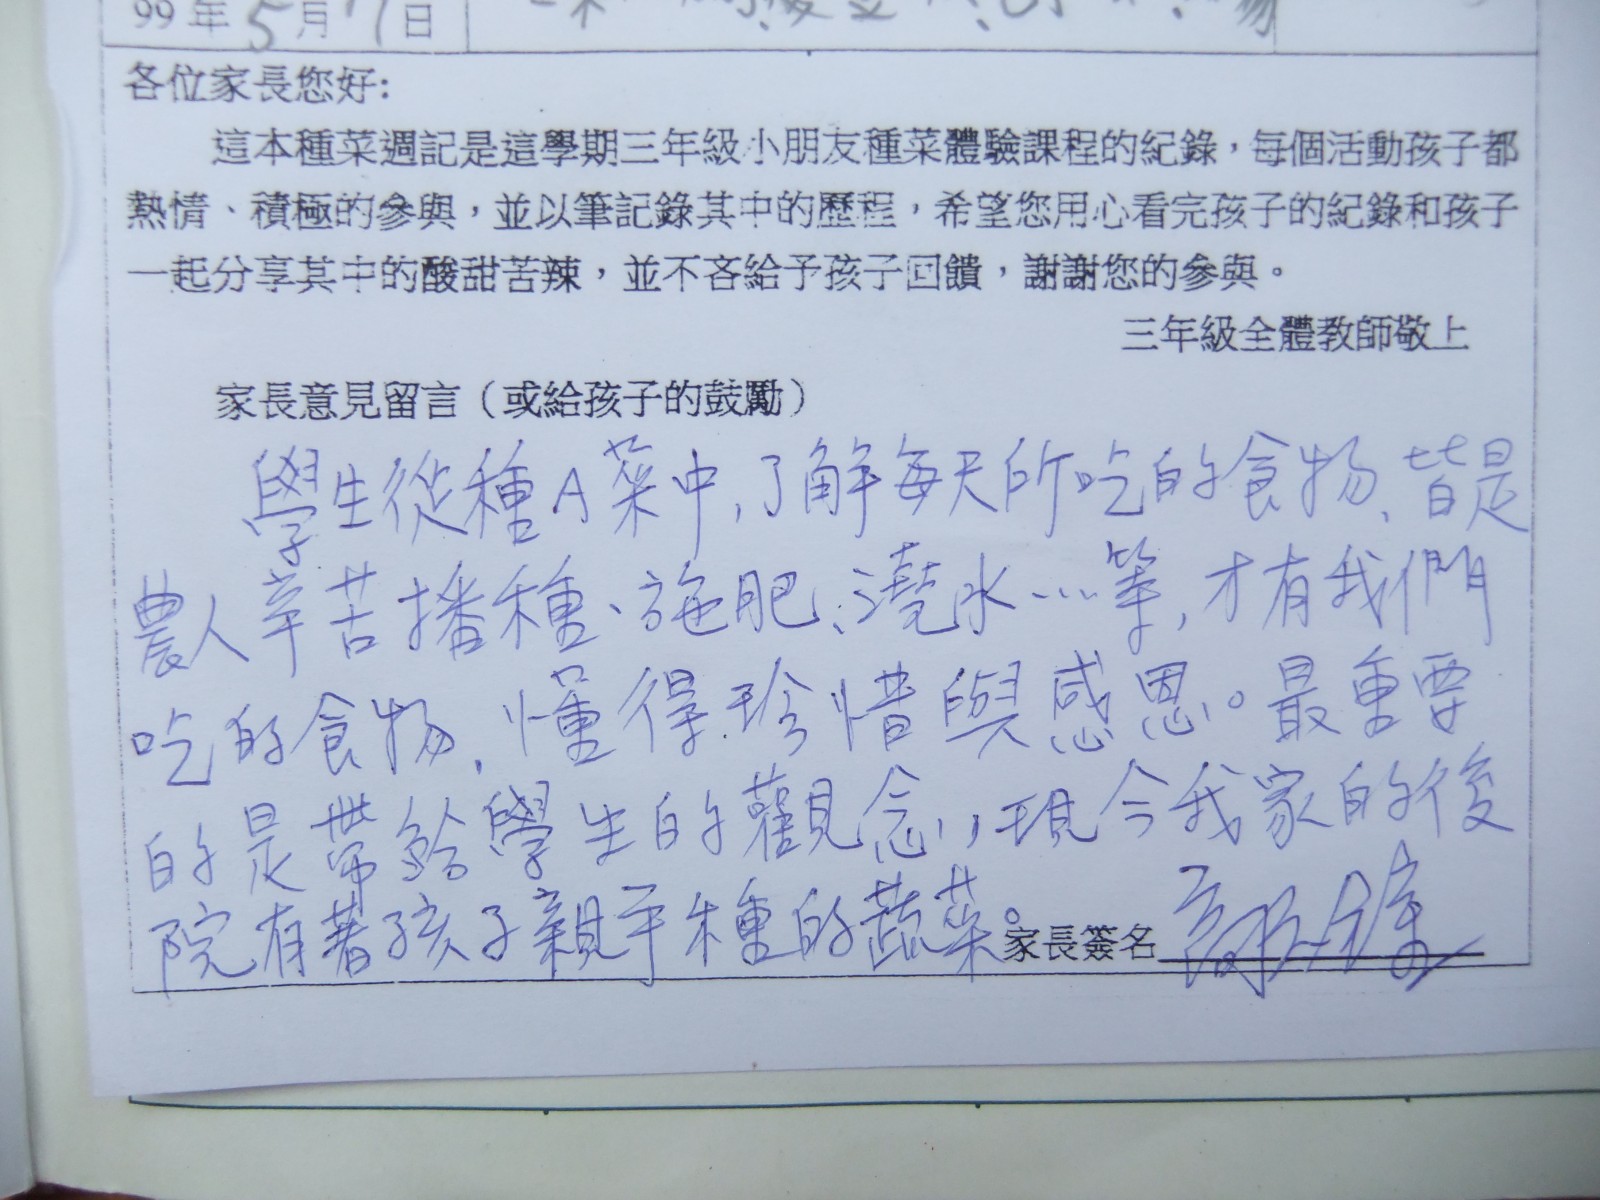 99年5月17日
各位家長您好:
這本種菜週記是這學期三年級小朋友種菜體驗課程的紀錄，每個活動孩子都
熱情、積極的參與，並以筆記錄其中的歷程，希望您用心看完孩子的紀錄和孩子
一起分享其中的酸甜苦辣，並不吝給予孩子回饋，謝謝您的參與。
三年級全體教師敬上
家長意見留言（或給孩子的鼓勵）
學生從種A菜中，了解每天所吃的食物、皆是
農人辛苦播種、施肥、澆水…等，才有我們
吃的食物、懂得珍惜與感恩。最重要
的是帶給學生的觀念，現今我家的後
院有著孩子親手種的蔬菜。
家長簽名